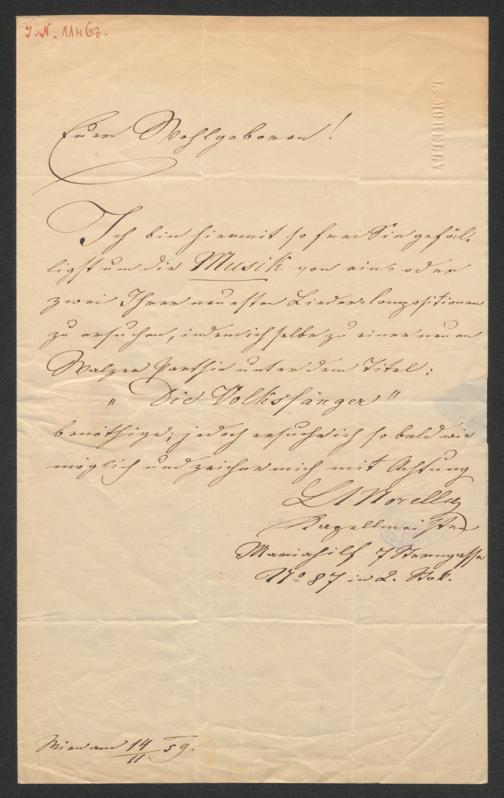 I. N. 11463.
L. MORELLY
Euer Wohlgeboren!
Ich bin hiermit so frei Sie gefäl-
ligst um die Musik von eins oder
zwei Ihrer neuesten Lieder Compositionen
zu ersuchen, indem ich selbe zu einer neuen
Walzer Parthie unter dem Titel:
„Die Volkssänger"
benöthige, jedoch ersuche ich so bald wie
möglich und zeichne mich mit Achtung
Morelly
Kapellmeister
Mariahilf 7 Sterngasse
No 87 in 2. Stok.
Wien am 14/11 59.